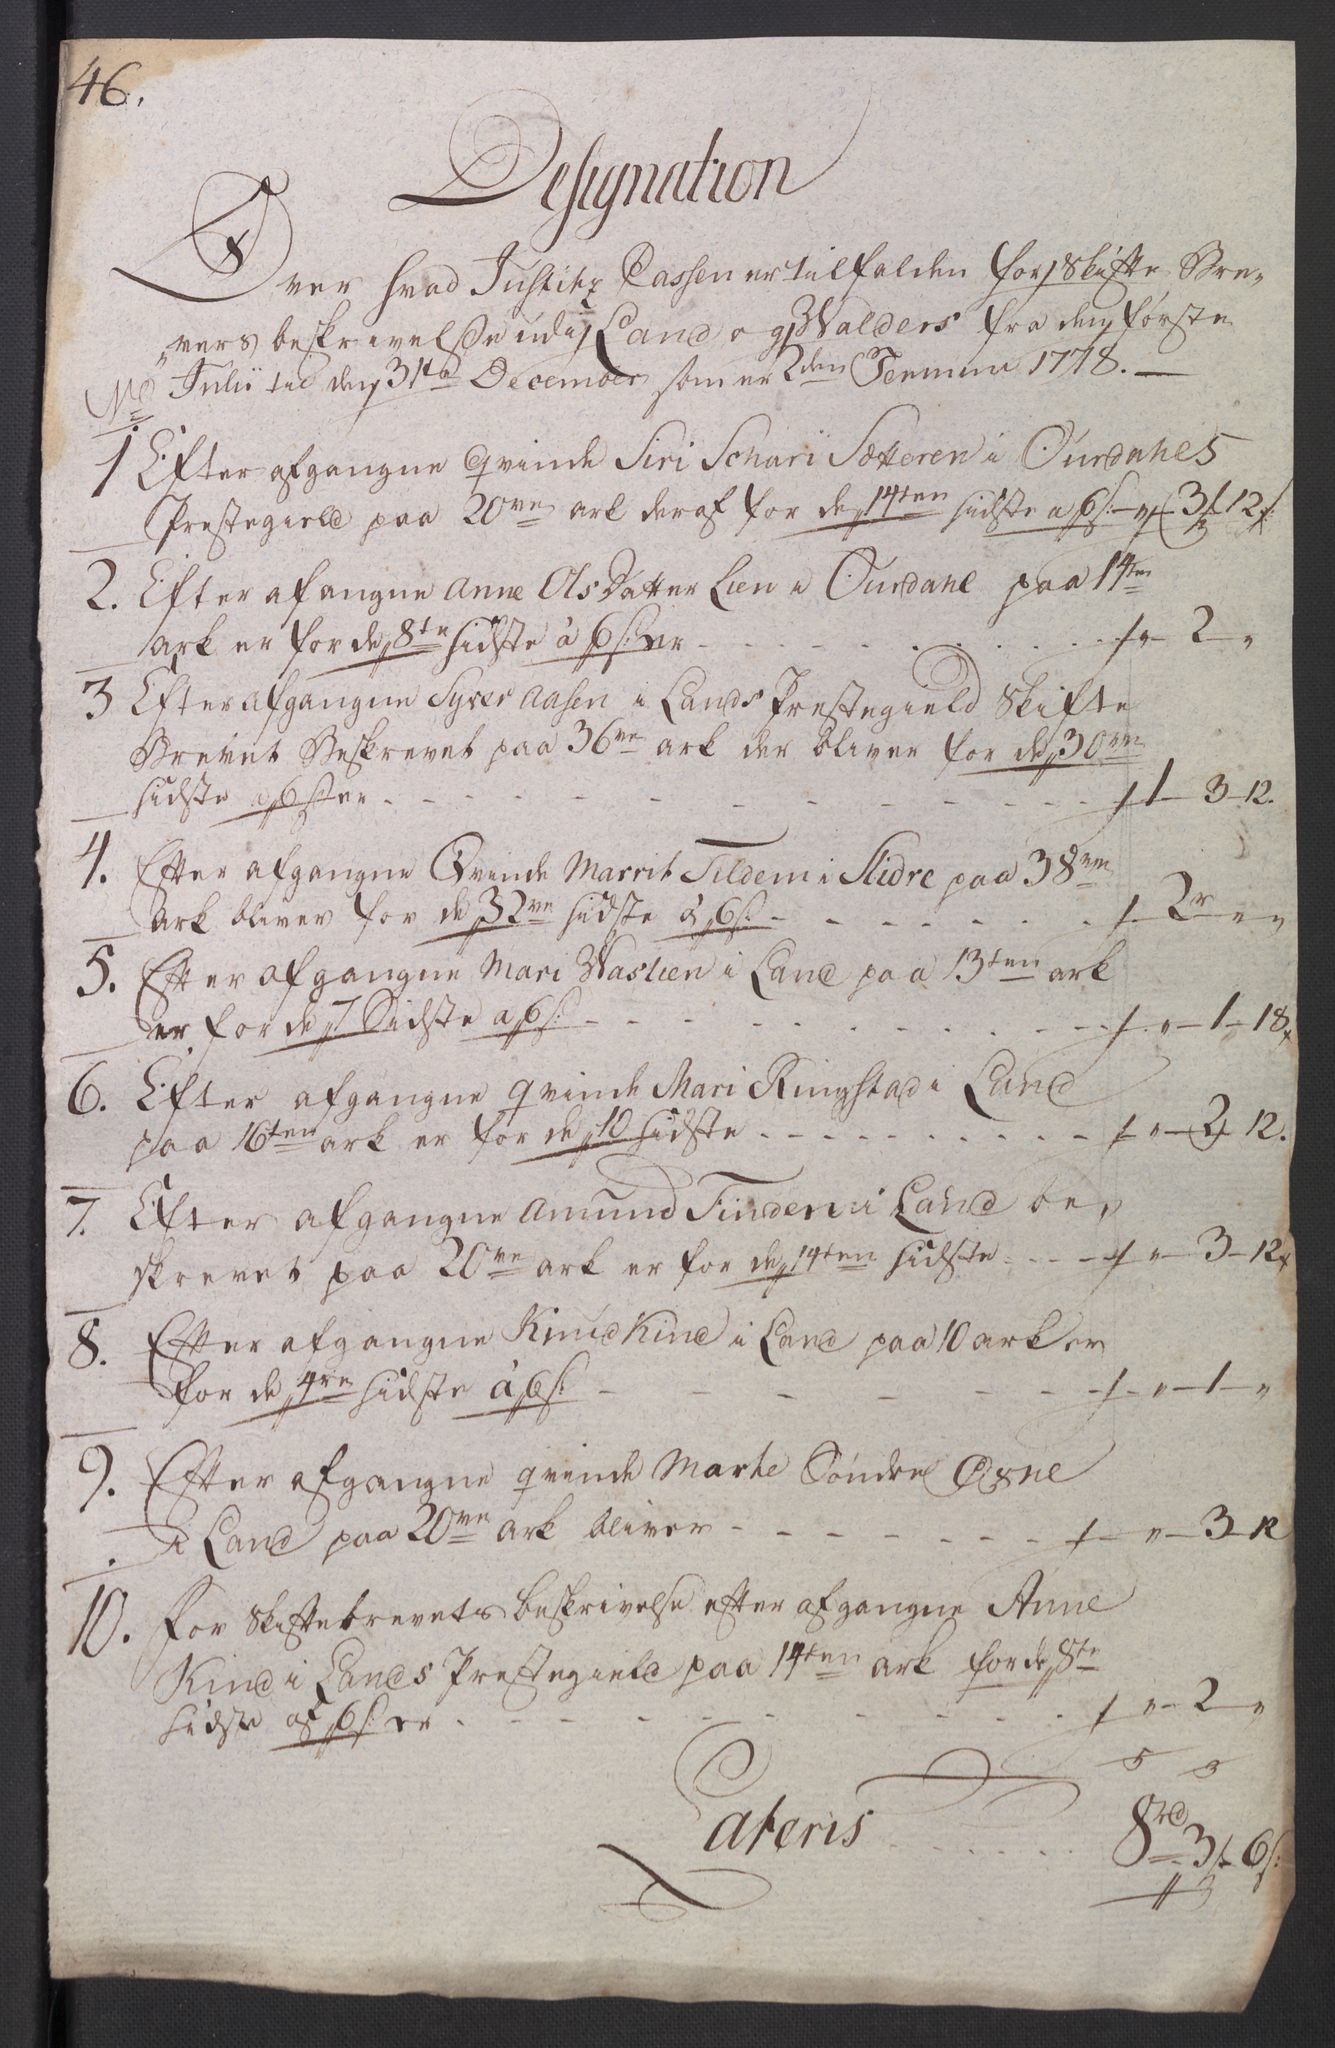 46.
Designation
Over hvad Justitz Cassen er tilfalden for Skifte Bre-
vers beskrivelse udi Land og Walders fra den første
Julii til den 31te December som er 2den Termin 1778. —
No
1 Efter afgangne qvinde Siri Schari Sætteren i Ourdahls
Prestegield paa 20ve ark deraf for de 14ten sidste a 6 s: — „ 3 12 s:
2. Efter afangne Anne OlsDatter Lien i Ourdahl paa 14ten
ark er for de 8te sidste à 6 s: er - - - „ 2 „
3 Efter afgangne Syver Aasen i Lands Prestegield Skifte
Brevet Beskrevet paa 36ve ark der bliver for de 30ve
sidste a 6 s er - - - 1 - 3 - 12.
4. Efter afgangne Qvinde Marrit Tildem i Slidre paa 38ve
ark bliver for de 32ve sidste à 6 s: - - - 2r - „ „
5. Efter afgangne Mari Wastien i Land paa 13ten ark
er for de 7 Sidste a 6 s: - - - „ - 1 - 18
6. Efter afgangne qvinde Mari Ringstad i Land
paa 16ten ark er for de 10 sidste - - - „ - 2 12.
7. Efter afgangne Amund Finden i Land be-
skrevet paa 20ve ark er for de 14ten sidste - - - „ - 3 - 12
8. Efter afgangne Knud Kind i Land paa 10 ark er
for de 4re sidste à 6 s: - - - „ - 1 - „
9. Efter afgangne qvinde Marte Søndre Æsne
i Land paa 20ve ark bliver - - - „ - 3 - 12
10. For Skiftebrevets beskrivelse efter afgangne Anne
Kind i Lands Prestegield paa 14ten ark for de 8te
sidste a 6 s: er - - - „ - 2 - „
5 3
Lateris - - - 8rd 3 6 s: